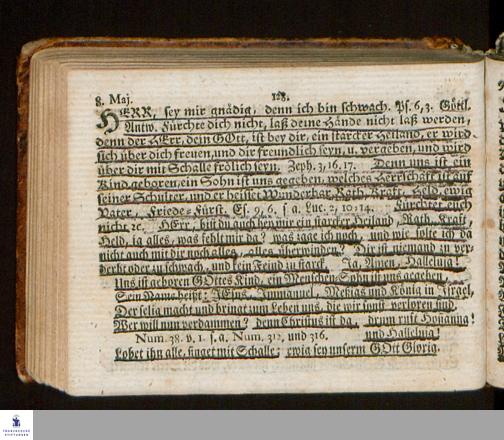 8. Maj. 128.
HERR, sey mir gnädig, denn ich bin schwach. Ps. 6, 3. Göttl.
Antw. Fürchte dich nicht, laß deine Hände nicht laß werden,
denn der HErr, dein GOtt, ist bey dir, ein starcker Heiland, er wird
sich über dich freuen, und dir freundlich seyn, u. vergeben, und wird
über dir mit Schalle frölich seyn. Zeph. 3, 16. 17. Denn uns ist ein
Kind geboren, ein Sohn ist uns gegeben, welches Herrschaft ist auf
seiner Schulter, und er heisset Wunderbar, Rath, Kraft, Held, ewig
Vater, Friede-Fürst. Es. 9, 6. s. a. Luc. 2, 10-14. Fürchtet euch
nicht ꝛc. HErr, bist du auch bey mir ein starcker Heiland, Rath, Kraft,
Held, ja alles, was fehlt mir da? was zage ich noch, und wie solte ich da
nicht auch mit dir noch alles, alles überwinden? Dir ist niemand zu ver-
derbt oder zu schwach, und kein Feind zu starck. Ja, Amen, Halleluja!
Uns ist geboren GOttes Kind, ein Menschen-Sohn ist uns gegeben,
Sein Name heißt: JEsus, Immanuel, Meßias und König in Israel,
Der selig macht und bringt zum Leben uns, die wir sonst verloren sind.
Wer will nun verdammen? denn Christus ist da, denn ruft Hosianna!
Num. 38. v. 1. s. a. Num. 312. und 316. und Halleluja!
Lobet ihn alle, singet mit Schalle: ewig sey unserm GOtt Gloria.
FRANCKESCHE
STIFTUNGEN